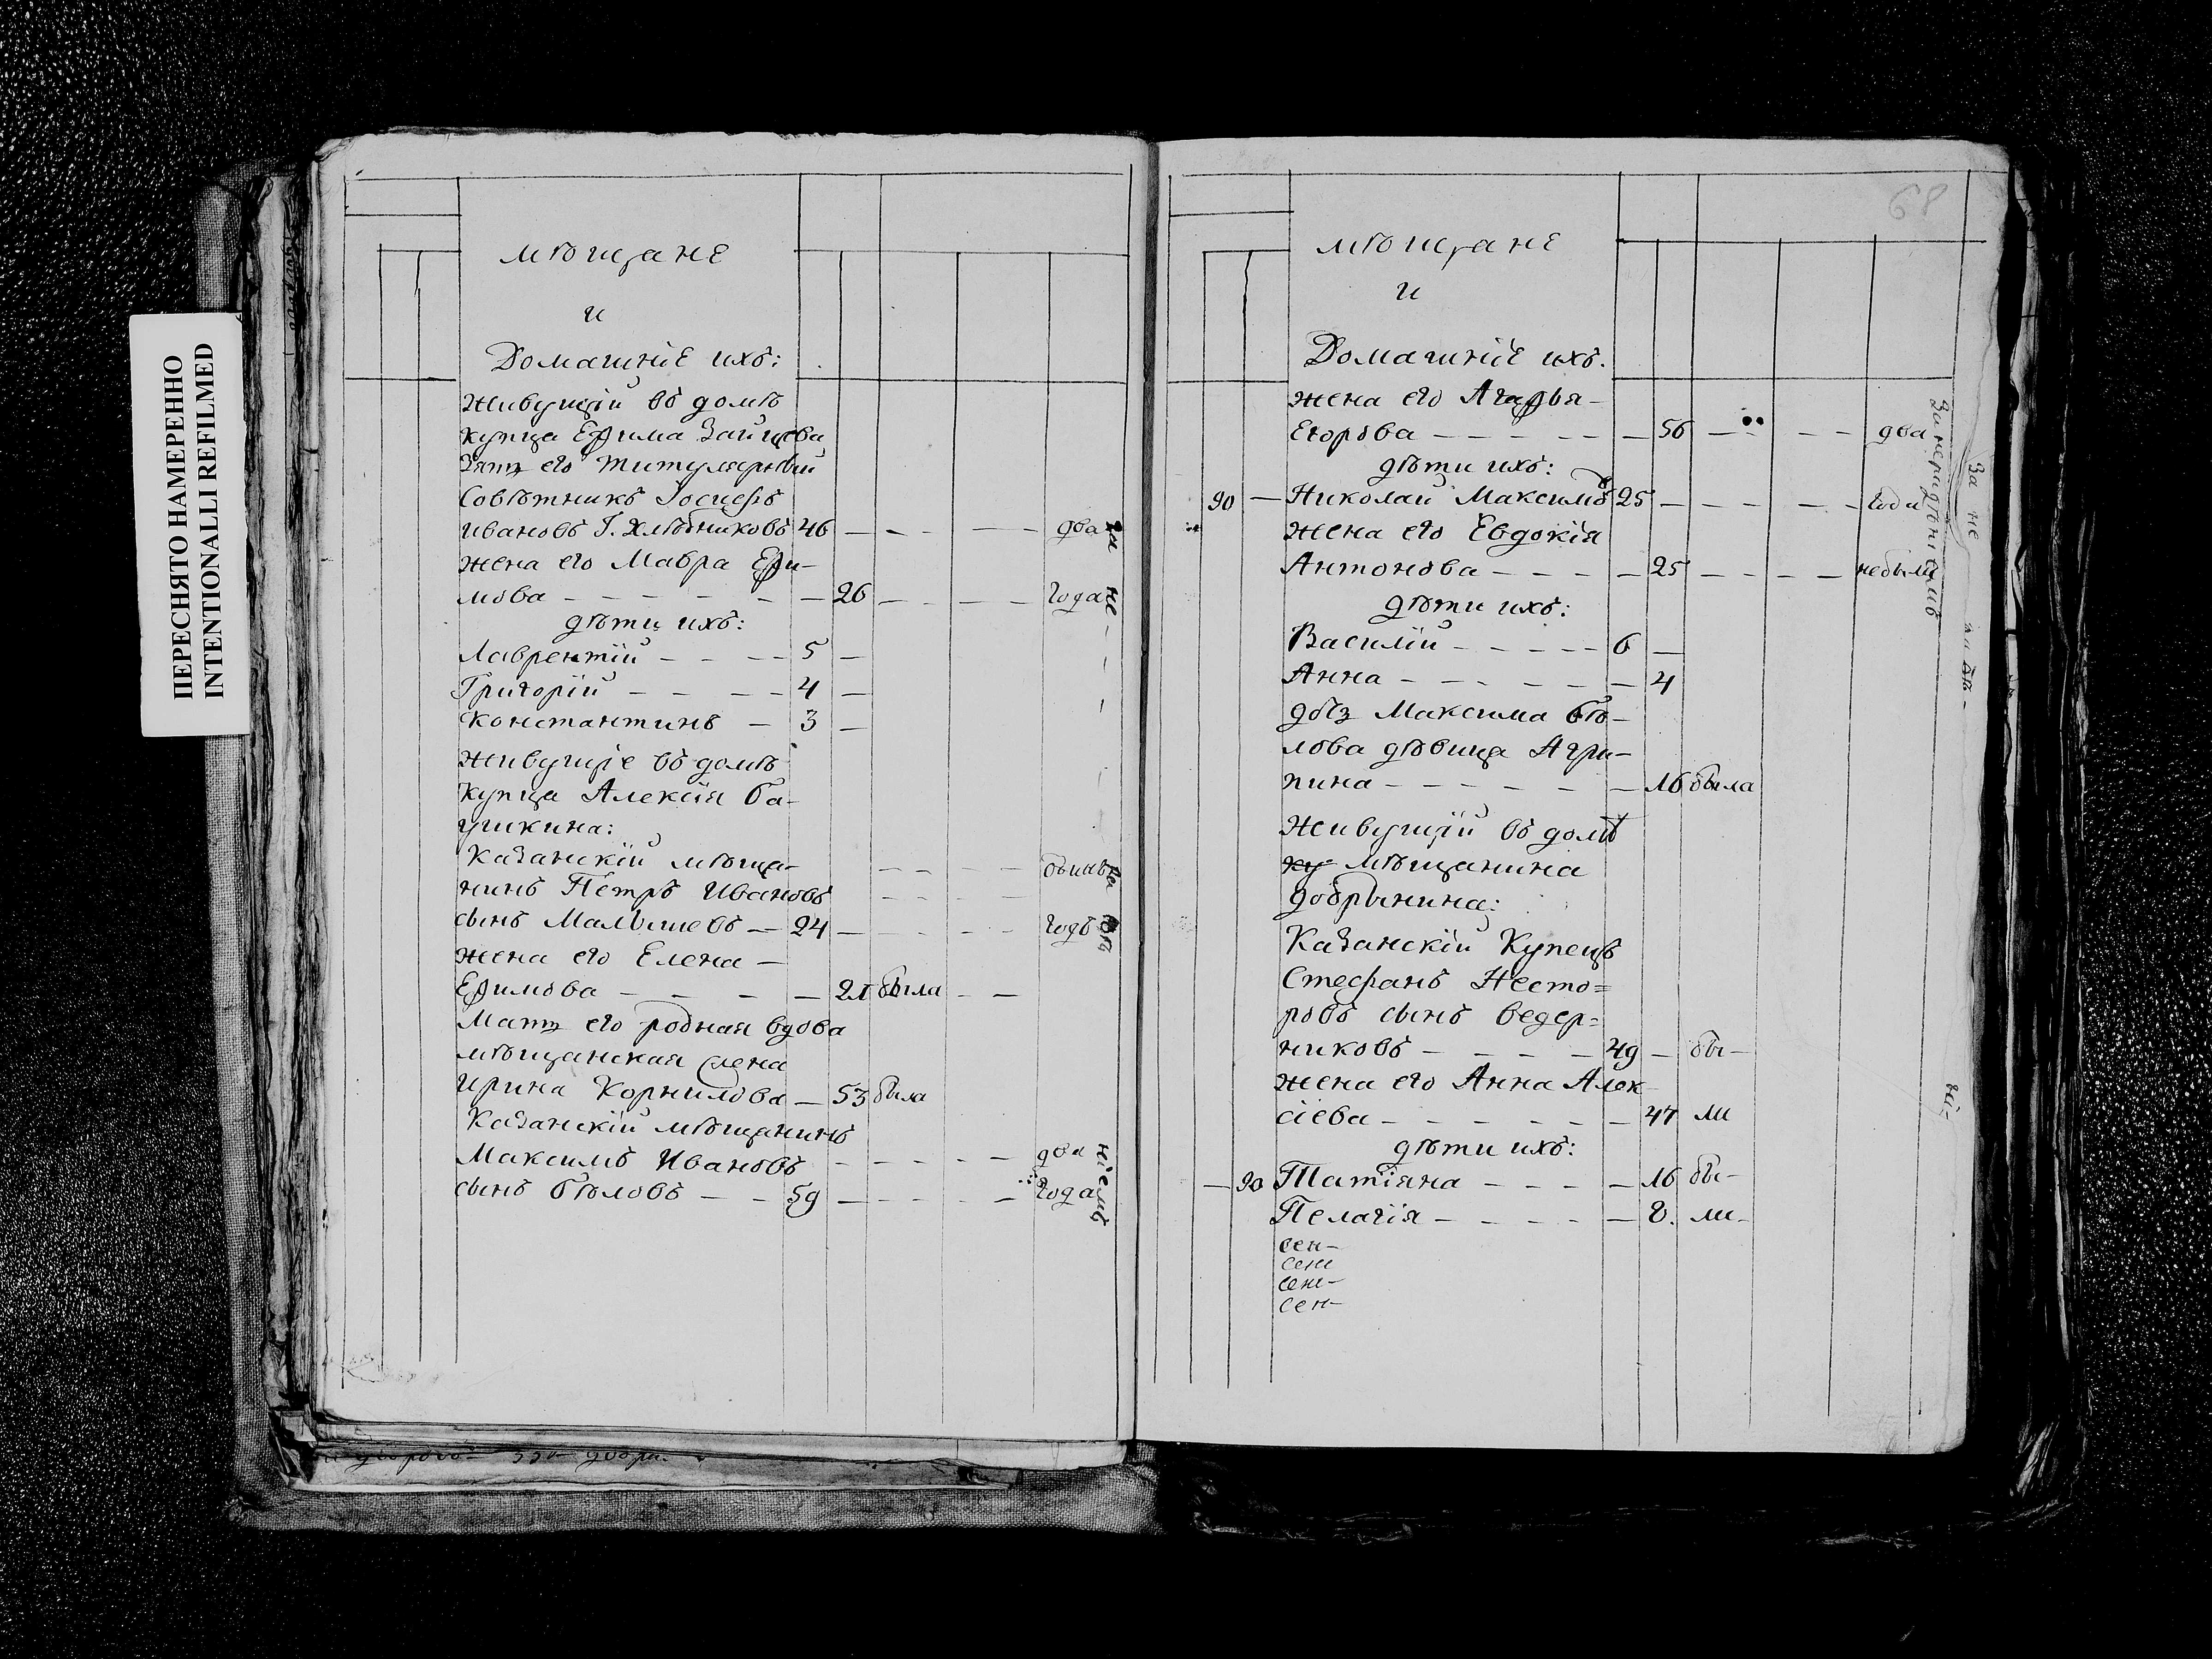 ПЕРЕСНЯТО НАМЕРЕННО
INTENTIONALLI REFILMED
мѣщане
и
Домашніе ихъ:
живущій въ домѣ
купца Ефима Зайцева
Зять его титулярный
Совѣтникъ Іосифъ
Ивановъ Г. Хлѣбниковъ 46 — — — — два
жена его Мавра Ефи-
мова — — — — 26 — — — года
дѣти ихъ:
Лаврентій — — — 5 —
Григорій — — — 4 —
Константинъ — 3 —
живущіе въ домѣ
купца Алексія Ба-
ушкина:
Казанскій мѣща-
нинъ Петръ Ивановъ
сынъ Малышевъ — 24 — — — — годъ
жена его Елена —
Ефимова — — — — 21 была — —
Мать его родная вдова
мѣщанская жена
Ирина Корнилова — 53 была
Казанскій мѣщанинъ
Максимъ Ивановъ — — — — два
сынъ Бѣловъ — — 59 — — — — года
68
мѣщане
и
Домашніе ихъ.
жена его Агафья —
Егорова — — — — — 56 — — — — два
дѣти ихъ:
90 — Николай Максимовъ 25 — — — — года
жена его Евдокія
Антонова — — — — 25 — — — — небыли
дѣти ихъ:
Василій — — — — — 6 —
Анна — — — — — — 4
дочь Максима Бѣ-
лова дѣвица Агри-
пина — — — — — — 16 была
Живущій въ домѣ
ку мѣщанина
добрынина:
Казанскій Купецъ
Стефанъ Несто=
ровъ сынъ Ведер=
никовъ — — — — 49 — бы —
жена его Анна Алек
сіева — — — — — — 47 ли
дѣти ихъ:
— 90 Татіяна — — — — 16 бы —
Пелагія — — — — — 8. ли —
За не
За нерадѣніемъ